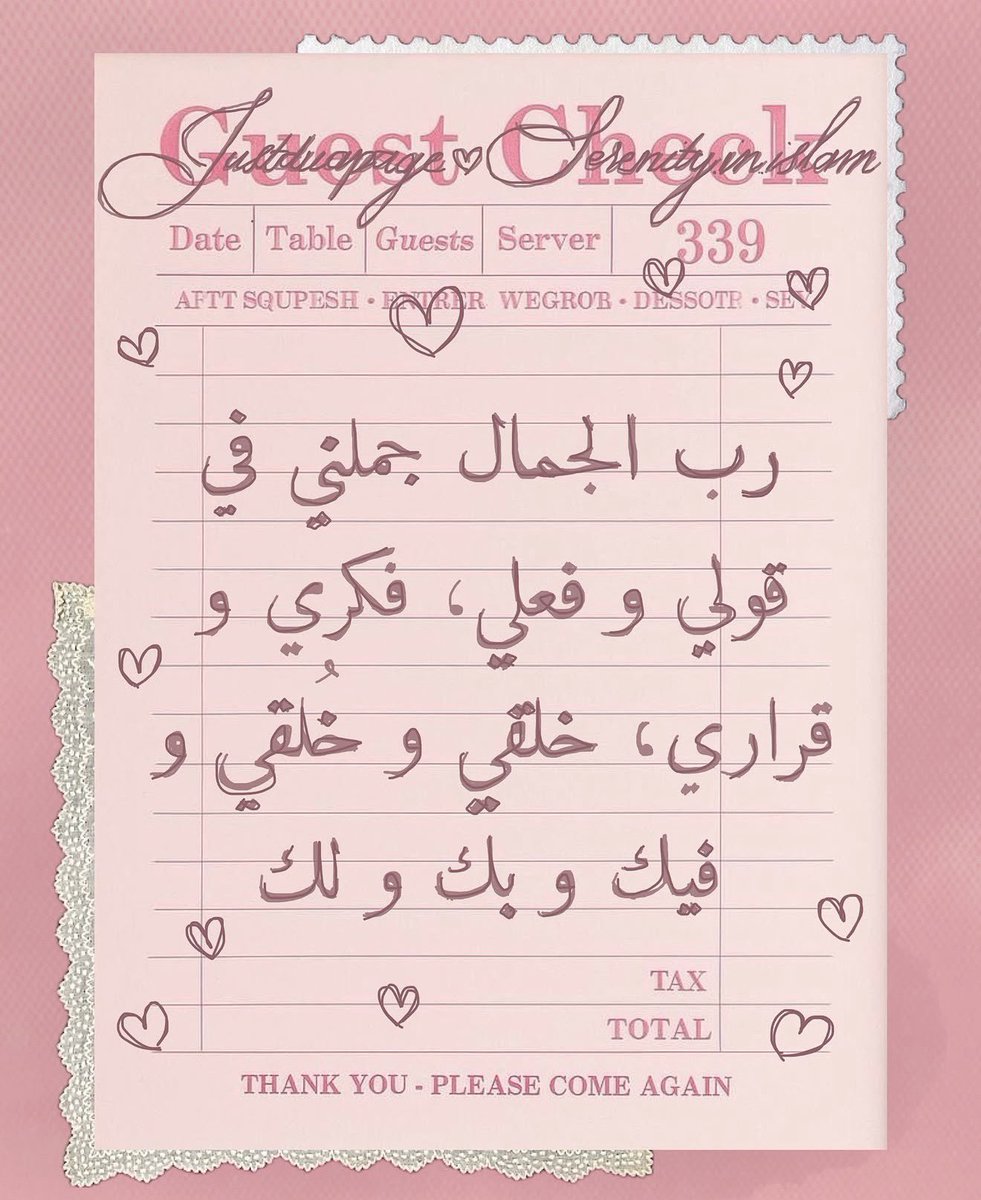 Guest Check
Justduapage Serenity.in.islam
Date Table Guests Server 339
AFTT SQUPESH • ENTRER WEGROR • DESSOTR • SEV
رب الجمال جملني في
قولي و فعلي، فكري و
قراري، خلقي و خُلقي و
فيك و بك و لك
TAX
TOTAL
THANK YOU - PLEASE COME AGAIN